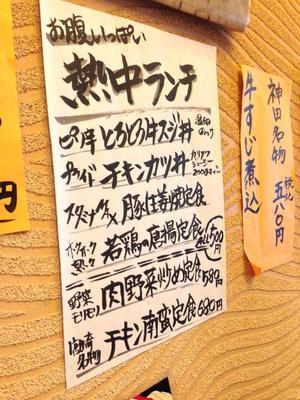 お腹いっぱい
熱中ランチ
とろとろ牛スジ丼
チキンカツ丼
豚生姜焼定食
若鶏の唐揚定食 500円
野菜モリモリ 肉野菜炒め定食 580円
宮崎名物 チキン南蛮定食 680円
神田名物
牛すじ煮込
五八〇円
円